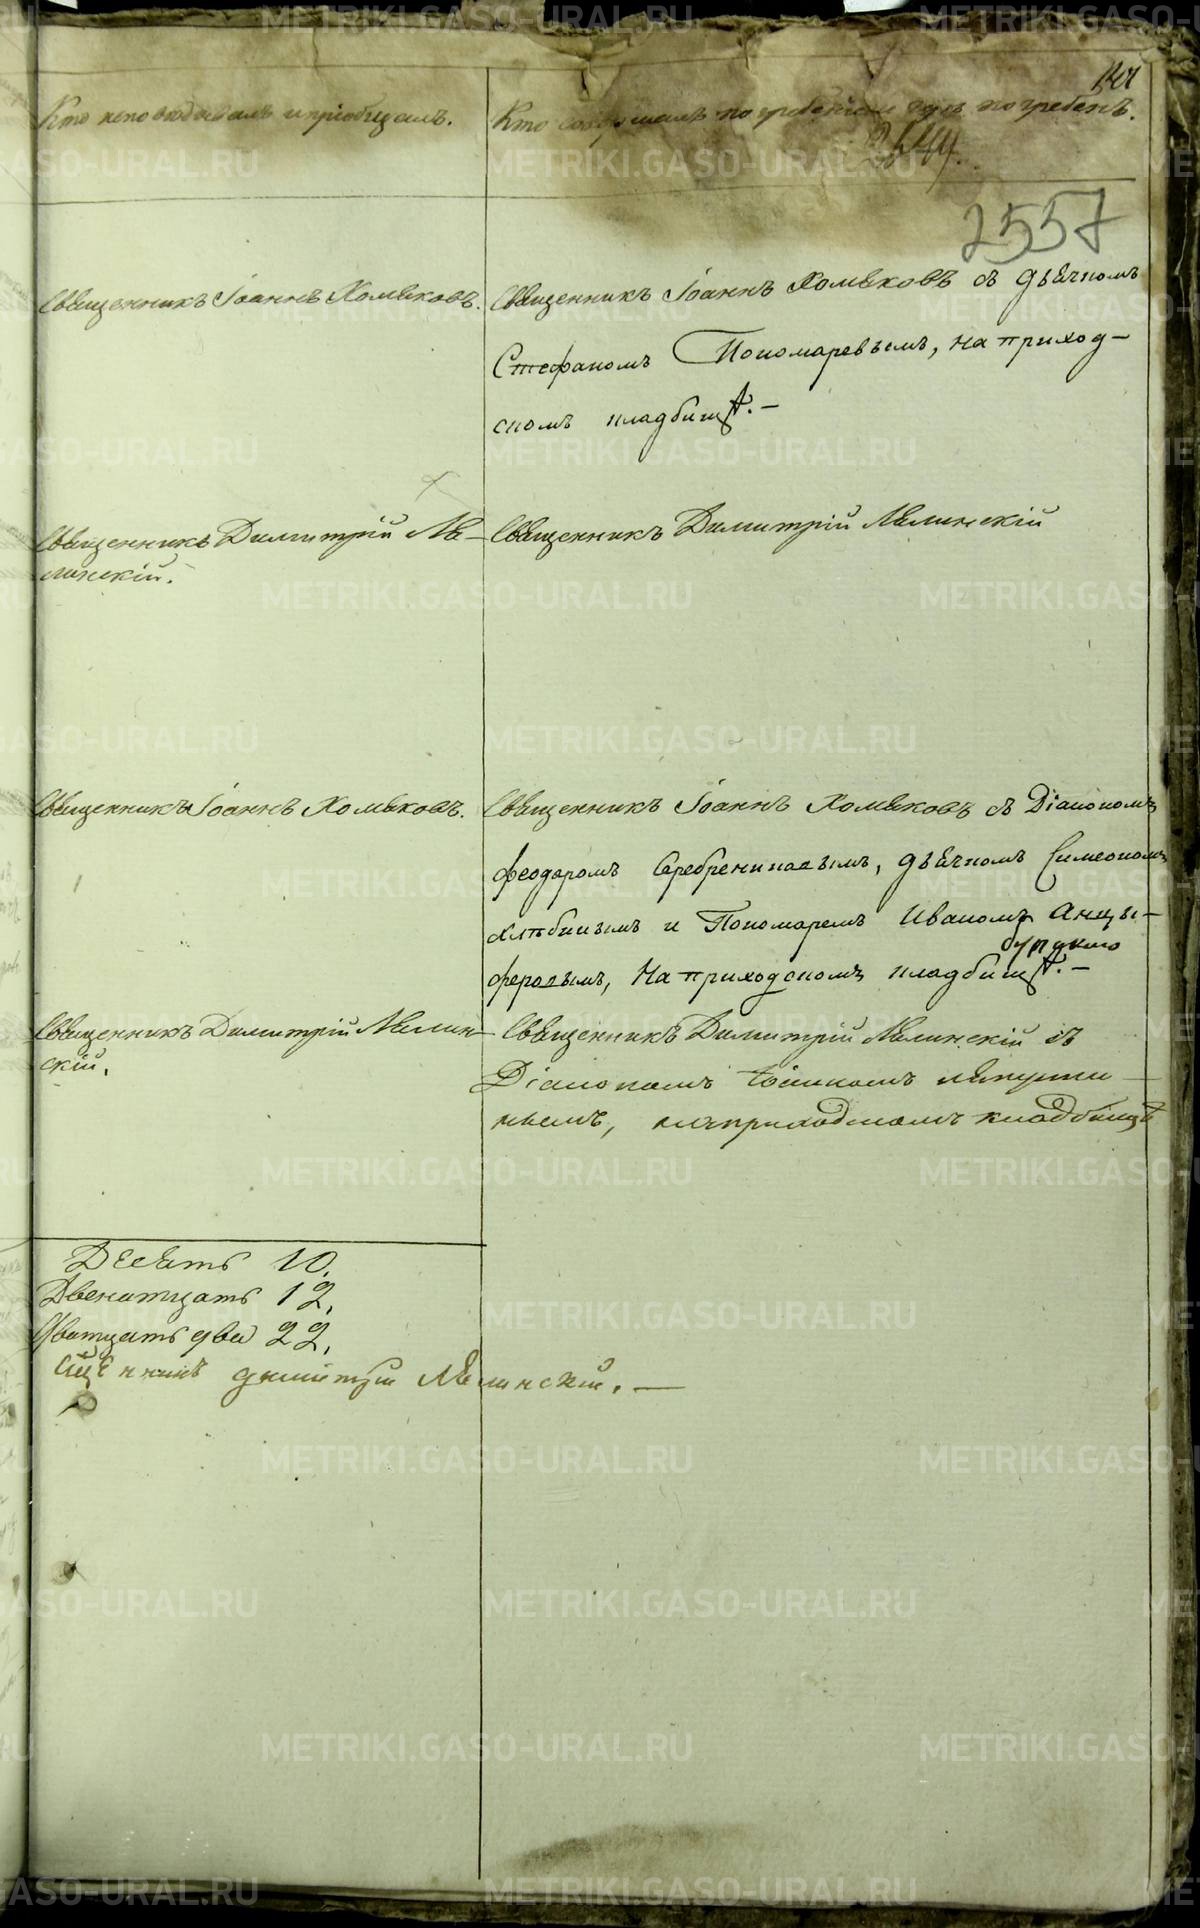 Кто исповѣдывалъ и пріобщалъ.
Кто совершалъ погребеніе и гдѣ погребенъ.
2557
Священникъ Іоаннъ Хомяковъ.
Священникъ Іоаннъ Хомяковъ съ дьячкомъ
Стефаномъ Пономаревымъ, на приход-
скомъ кладбищѣ.-
Священникъ Димитрій Мя-
линскій.
Священникъ Димитрій Мялинскій
Священникъ Іоаннъ Хомяковъ.
Священникъ Іоаннъ Хомяковъ съ Діакономъ
Феодоромъ Серебрениковымъ, дьячкомъ Симеономъ
Хлѣбинымъ и Пономаремъ Иваномъ Анцы-
феровымъ, на приходскомъ кладбищѣ.-
Священникъ Димитрій Мялин-
скій.
Священникъ Димитрій Мялинскій съ
Діакономъ
на приходскомъ кладбищѣ
Десять 10.
Двенатцать 12.
Дватцать два 22.
Мялинскій. —
METRIKI.GASO-URAL.RU